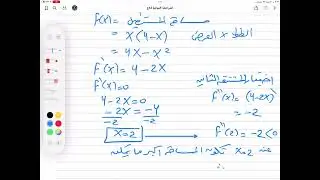 f(x) = مساحة المستطيل
الطول x العرض
= x(4-x)
= 4x - x²
f'(x) = 4 - 2x
f'(x) = 0
4 - 2x = 0
-2x = -4
-2 -2
x = 2
اختبار المشتقة الثانية
f''(x) = (4-2x)'
= -2
f''(2) = -2 < 0
عند x=2 تكون المساحة أكبر ما يمكن